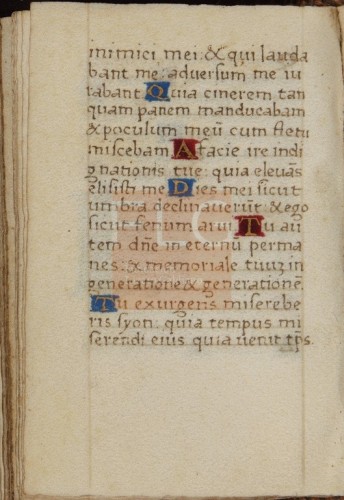 inimici mei: & qui lauda
bant me adversum me iu
rabant Quia cinerem tan
quam panem manducabam
& poculum meū cum fletu
miscebam A facie ire indi
gnationis tue: quia elevās
elisisti me Dies mei sicut
umbra declinaverūt: & ego
sicut fenum arui Tu au
tem dn̄e in eternū perma
nes: & memoriale tuuz in
generatione & generationē
Tu exurgens miserebe
ris syon: quia tempus mi
serendi eius quia venit tp̄s.